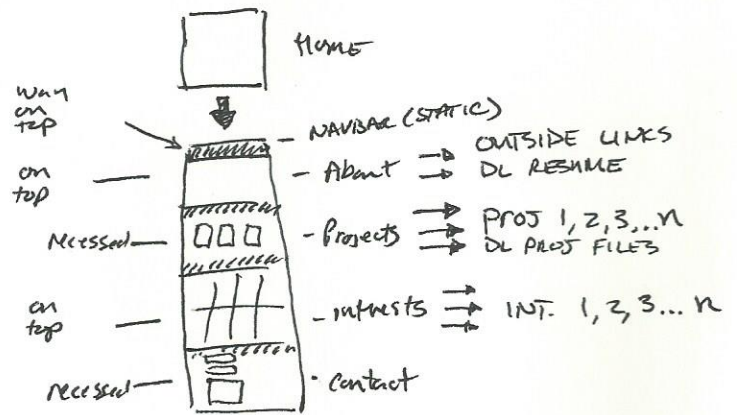 HOME
way
on
top
NAVBAR (STATIC)
on
top
About
OUTSIDE LINKS
DL RESUME
recessed
Projects
PROJ 1, 2, 3, ... n
DL PROJ FILES
on
top
interests
INT. 1, 2, 3 ... n
recessed
contact